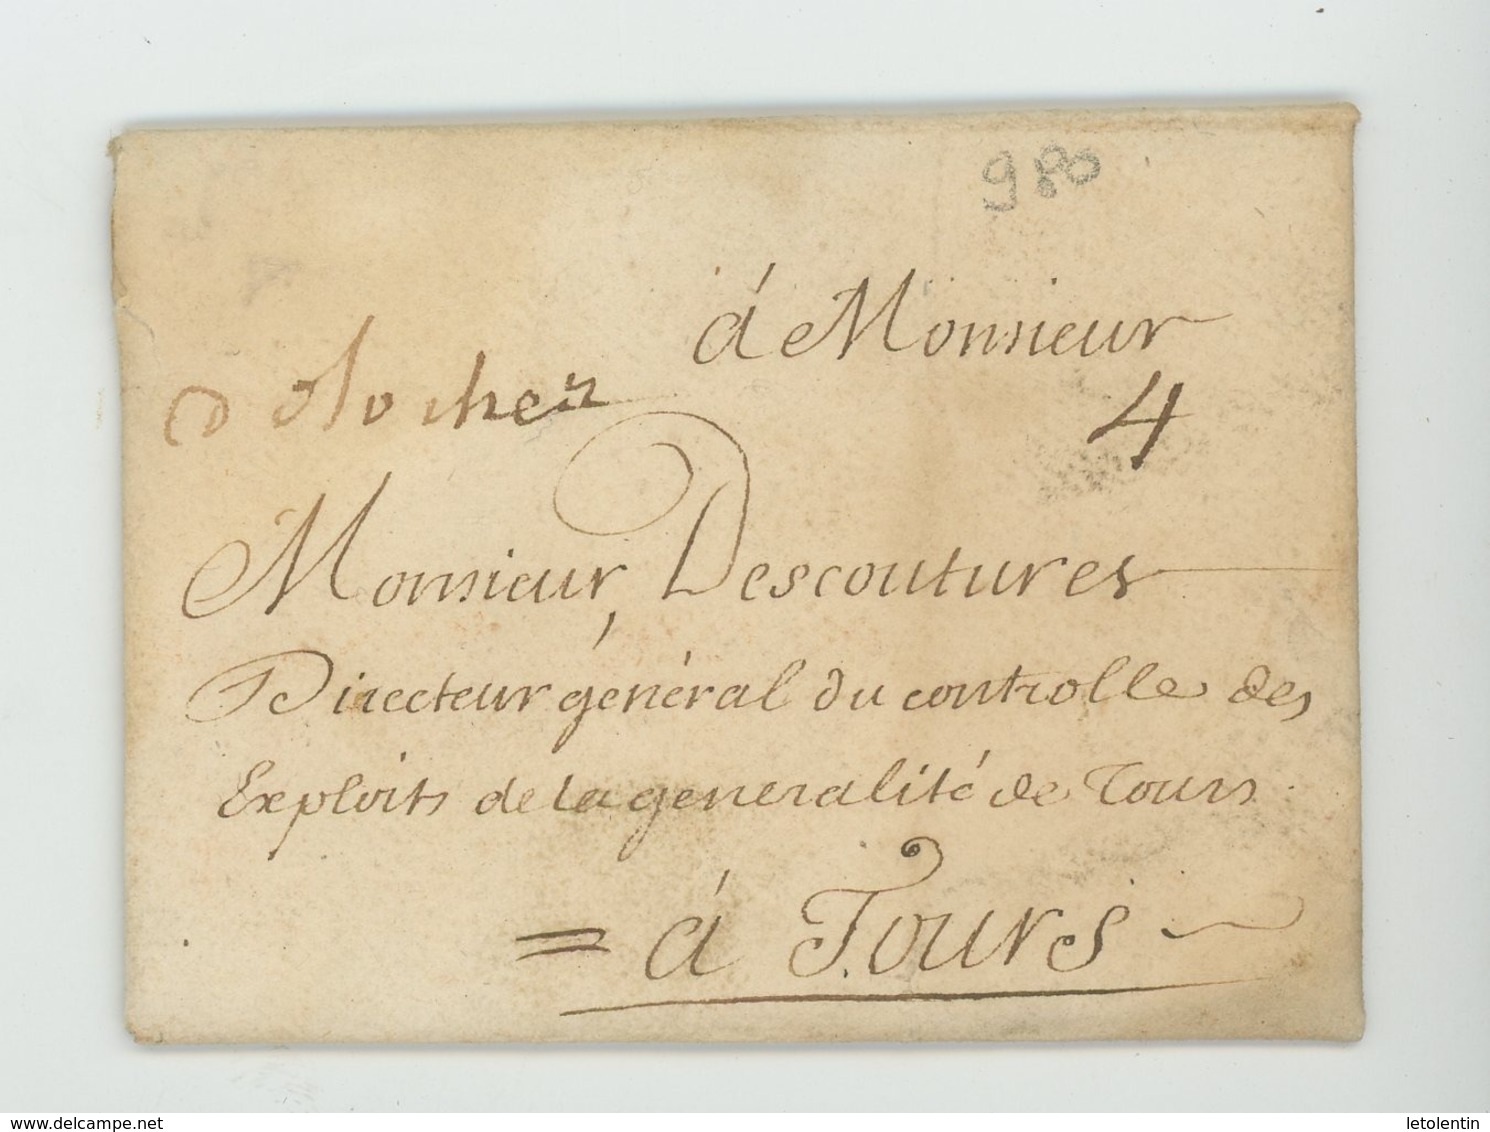 980
á Monsieur
4
Monsieur, Descoutures
Directeur général du controlle des
Exploits de la generalité de Tours
= á Tours
delcampe.net
letolentin